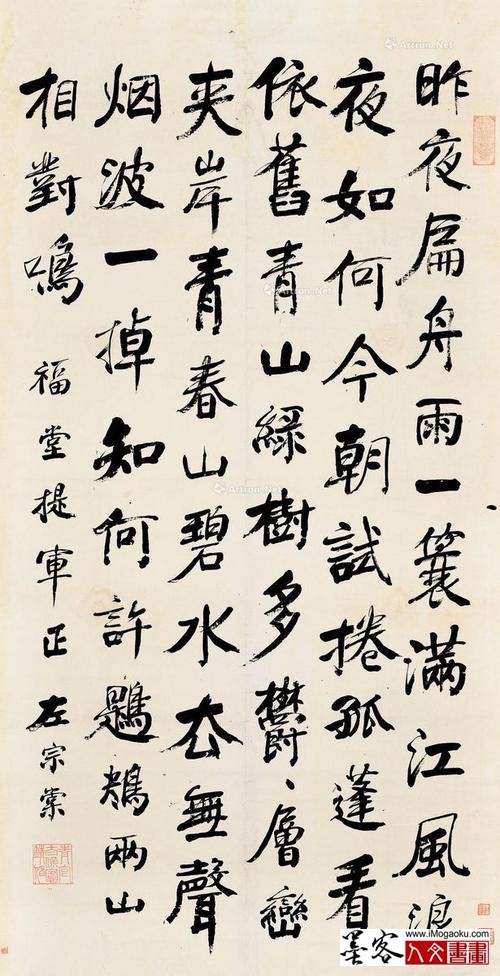 昨夜扁舟雨一簑滿江風浪
夜如何今朝試捲孤蓬看
依舊青山綠樹多鬱〻層巒
夾岸青春山碧水去無聲
烟波一掉知何許鶗鴂兩山
相對鳴 福堂提軍正 左宗棠
Artron.Net
www.iMogaoku.com
墨客
人文書畫